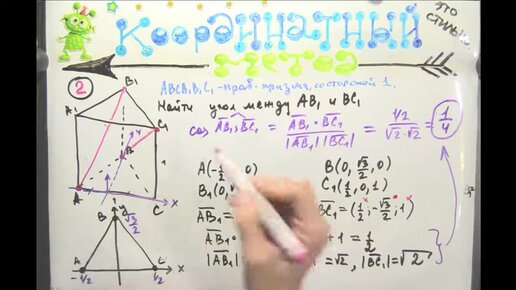 ЭТО
СТИЛЬНО
Координатный
метод
2
ABCA₁B₁C₁ - прав. призма, со стороной 1.
Найти угол между AB₁ и BC₁
cos AB₁;BC₁ = AB₁ · BC₁ / |AB₁| |BC₁| = 1/2 / √2·√2 = 1/4
A(-1/2, 0) B(0, √3/2, 0)
B₁(0, C₁(1/2, 0, 1)
AB₁ = BC₁ = (1/2; -√3/2; 1)
AB₁ · + 1 = 1/2
|AB₁| = √2, |BC₁| = √2
B₁
A₁
C₁
B
1
A
C
x
y
B
√3/2
A
C
x
-1/2
1/2